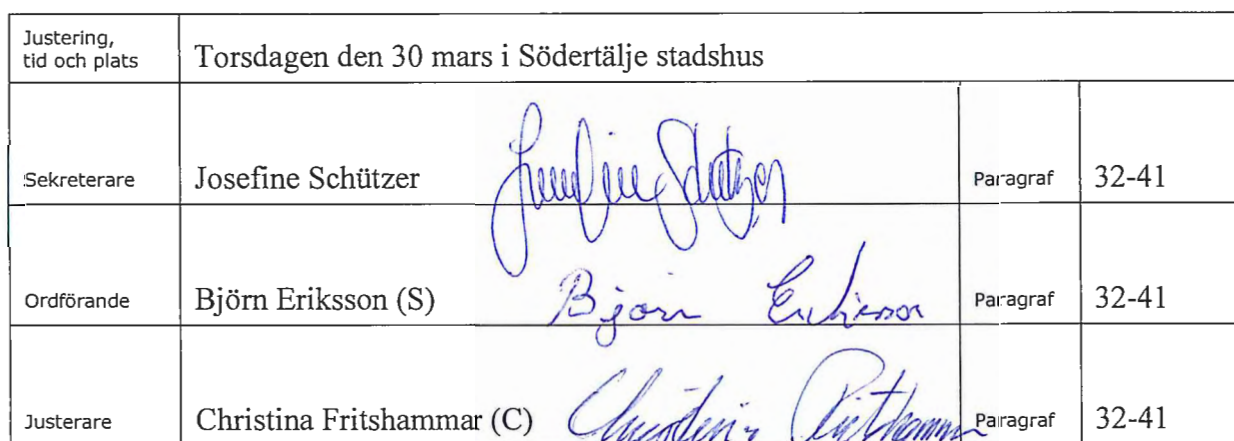 Justering,
tid och plats Torsdagen den 30 mars i Södertälje stadshus
Sekreterare Josefine Schützer Josefine Schützer Paragraf 32-41
Ordförande Björn Eriksson (S) Björn Eriksson Paragraf 32-41
Justerare Christina Fritshammar (C) Christina Fritshammar Paragraf 32-41